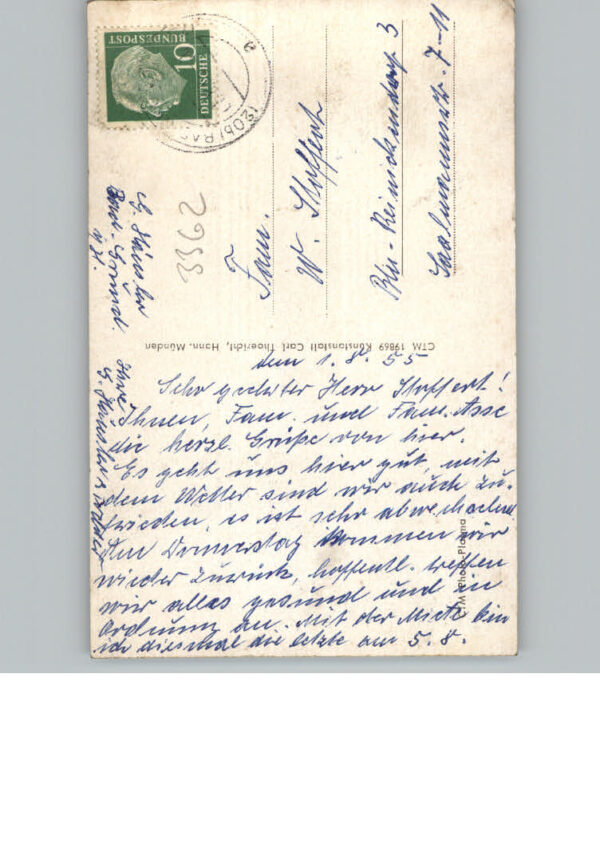 10
DEUTSCHE
BUNDESPOST
(20b) BA
e
3362
Fam.
W. Stoffert
Bln-Reinickendorf 3
7-11
CTM 19869 Kunstanstalt Carl Thoericht, Hann. Münden
CTM-Photo-Plasma
den 1.8.55
Sehr geehrter Herr Stoffert!
Ihnen, Fam. und Fam. Asse
die herzl. Grüße von hier.
Es geht uns hier gut, mit
dem Wetter sind wir auch zu-
frieden, es ist sehr
Am Donnerstag kommen wir
wieder zurück, hoffentl. treffen
wir alles gesund und in
Ordnung an. Mit der Miete bin
ich diesmal die letzte am 5.8.
Ihre